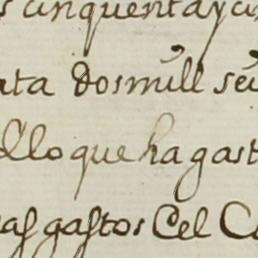 cinquenta y ci
ta dosmill sei
lo que ha gast
gastos Cel C